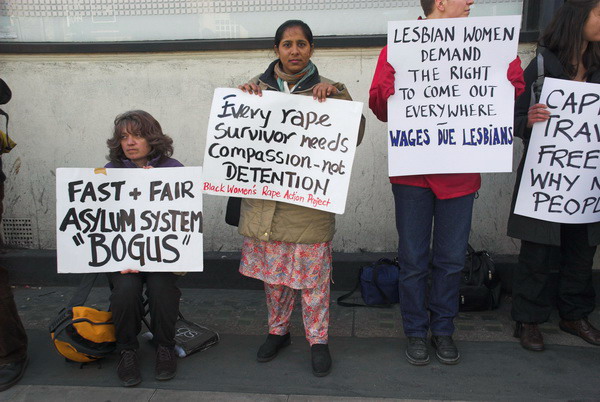 FAST + FAIR
ASYLUM SYSTEM
"BOGUS"
Every rape
survivor needs
compassion-not
DETENTION
Black Women's Rape Action Project
LESBIAN WOMEN
DEMAND
THE RIGHT
TO COME OUT
EVERYWHERE
WAGES DUE LESBIANS
TRAV
FREE
WHY N
PEOPL